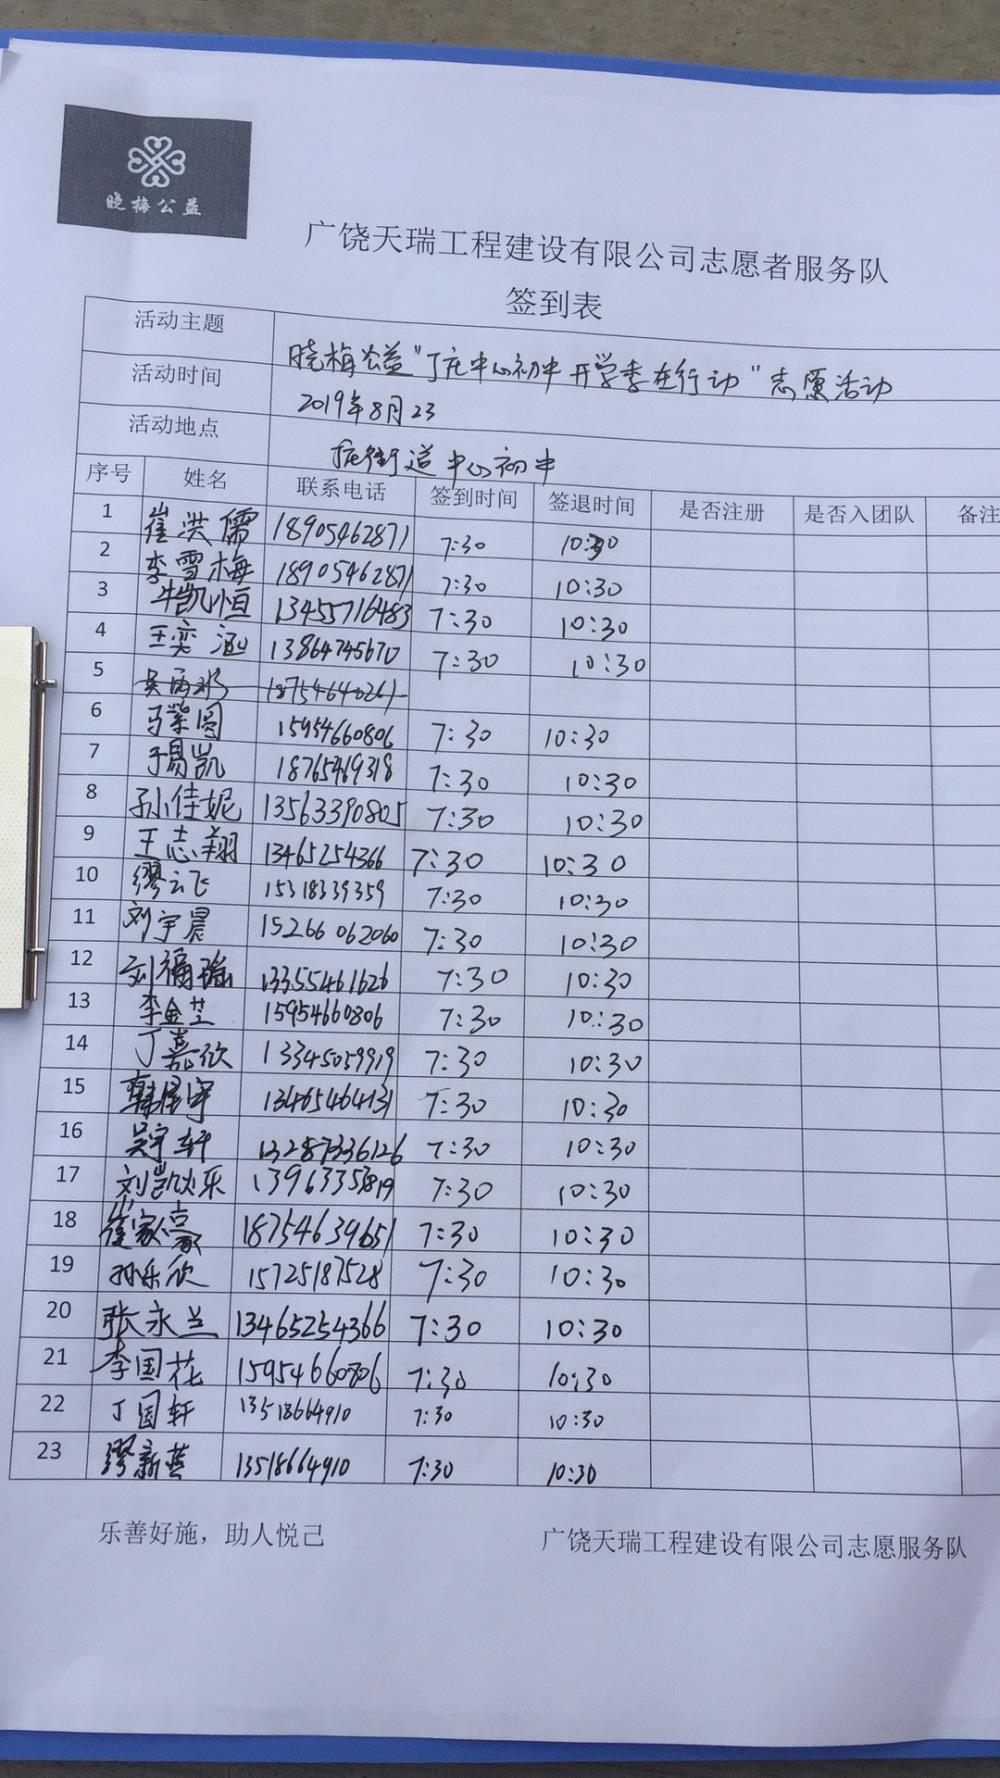 晓梅公益
广饶天瑞工程建设有限公司志愿者服务队
签到表
活动主题 晓梅公益"丁庄中心初中开学季在行动"志愿活动
活动时间 2019年8月23
活动地点 丁庄街道中心初中
序号 姓名 联系电话 签到时间 签退时间 是否注册 是否入团队 备注
1 崔洪儒 18905462871 7:30 10:30
2 李雪梅 18905462871 7:30 10:30
3 牛凯恒 13455716483 7:30 10:30
4 王奕涵 13864745670 7:30 10:30
5 18754640261
6 马紫图 15954660806 7:30 10:30
7 于易凯 18765469318 7:30 10:30
8 孙佳妮 13563390805 7:30 10:30
9 王志翔 13465254366 7:30 10:30
10 缪云飞 15318339359 7:30 10:30
11 刘宇晨 15266062060 7:30 10:30
12 刘福瑞 13355461626 7:30 10:30
13 李金芝 15954660806 7:30 10:30
14 丁嘉欣 13345059919 7:30 10:30
15 13465464131 7:30 10:30
16 吴宇轩 13287336126 7:30 10:30
17 7:30 10:30
18 18754639651 7:30 10:30
19 孙乐欣 15725187528 7:30 10:30
20 张永兰 13465254366 7:30 10:30
21 李国花 15954660806 7:30 10:30
22 丁国轩 13518664910 7:30 10:30
23 缪新燕 13518664910 7:30 10:30
乐善好施，助人悦己 广饶天瑞工程建设有限公司志愿服务队